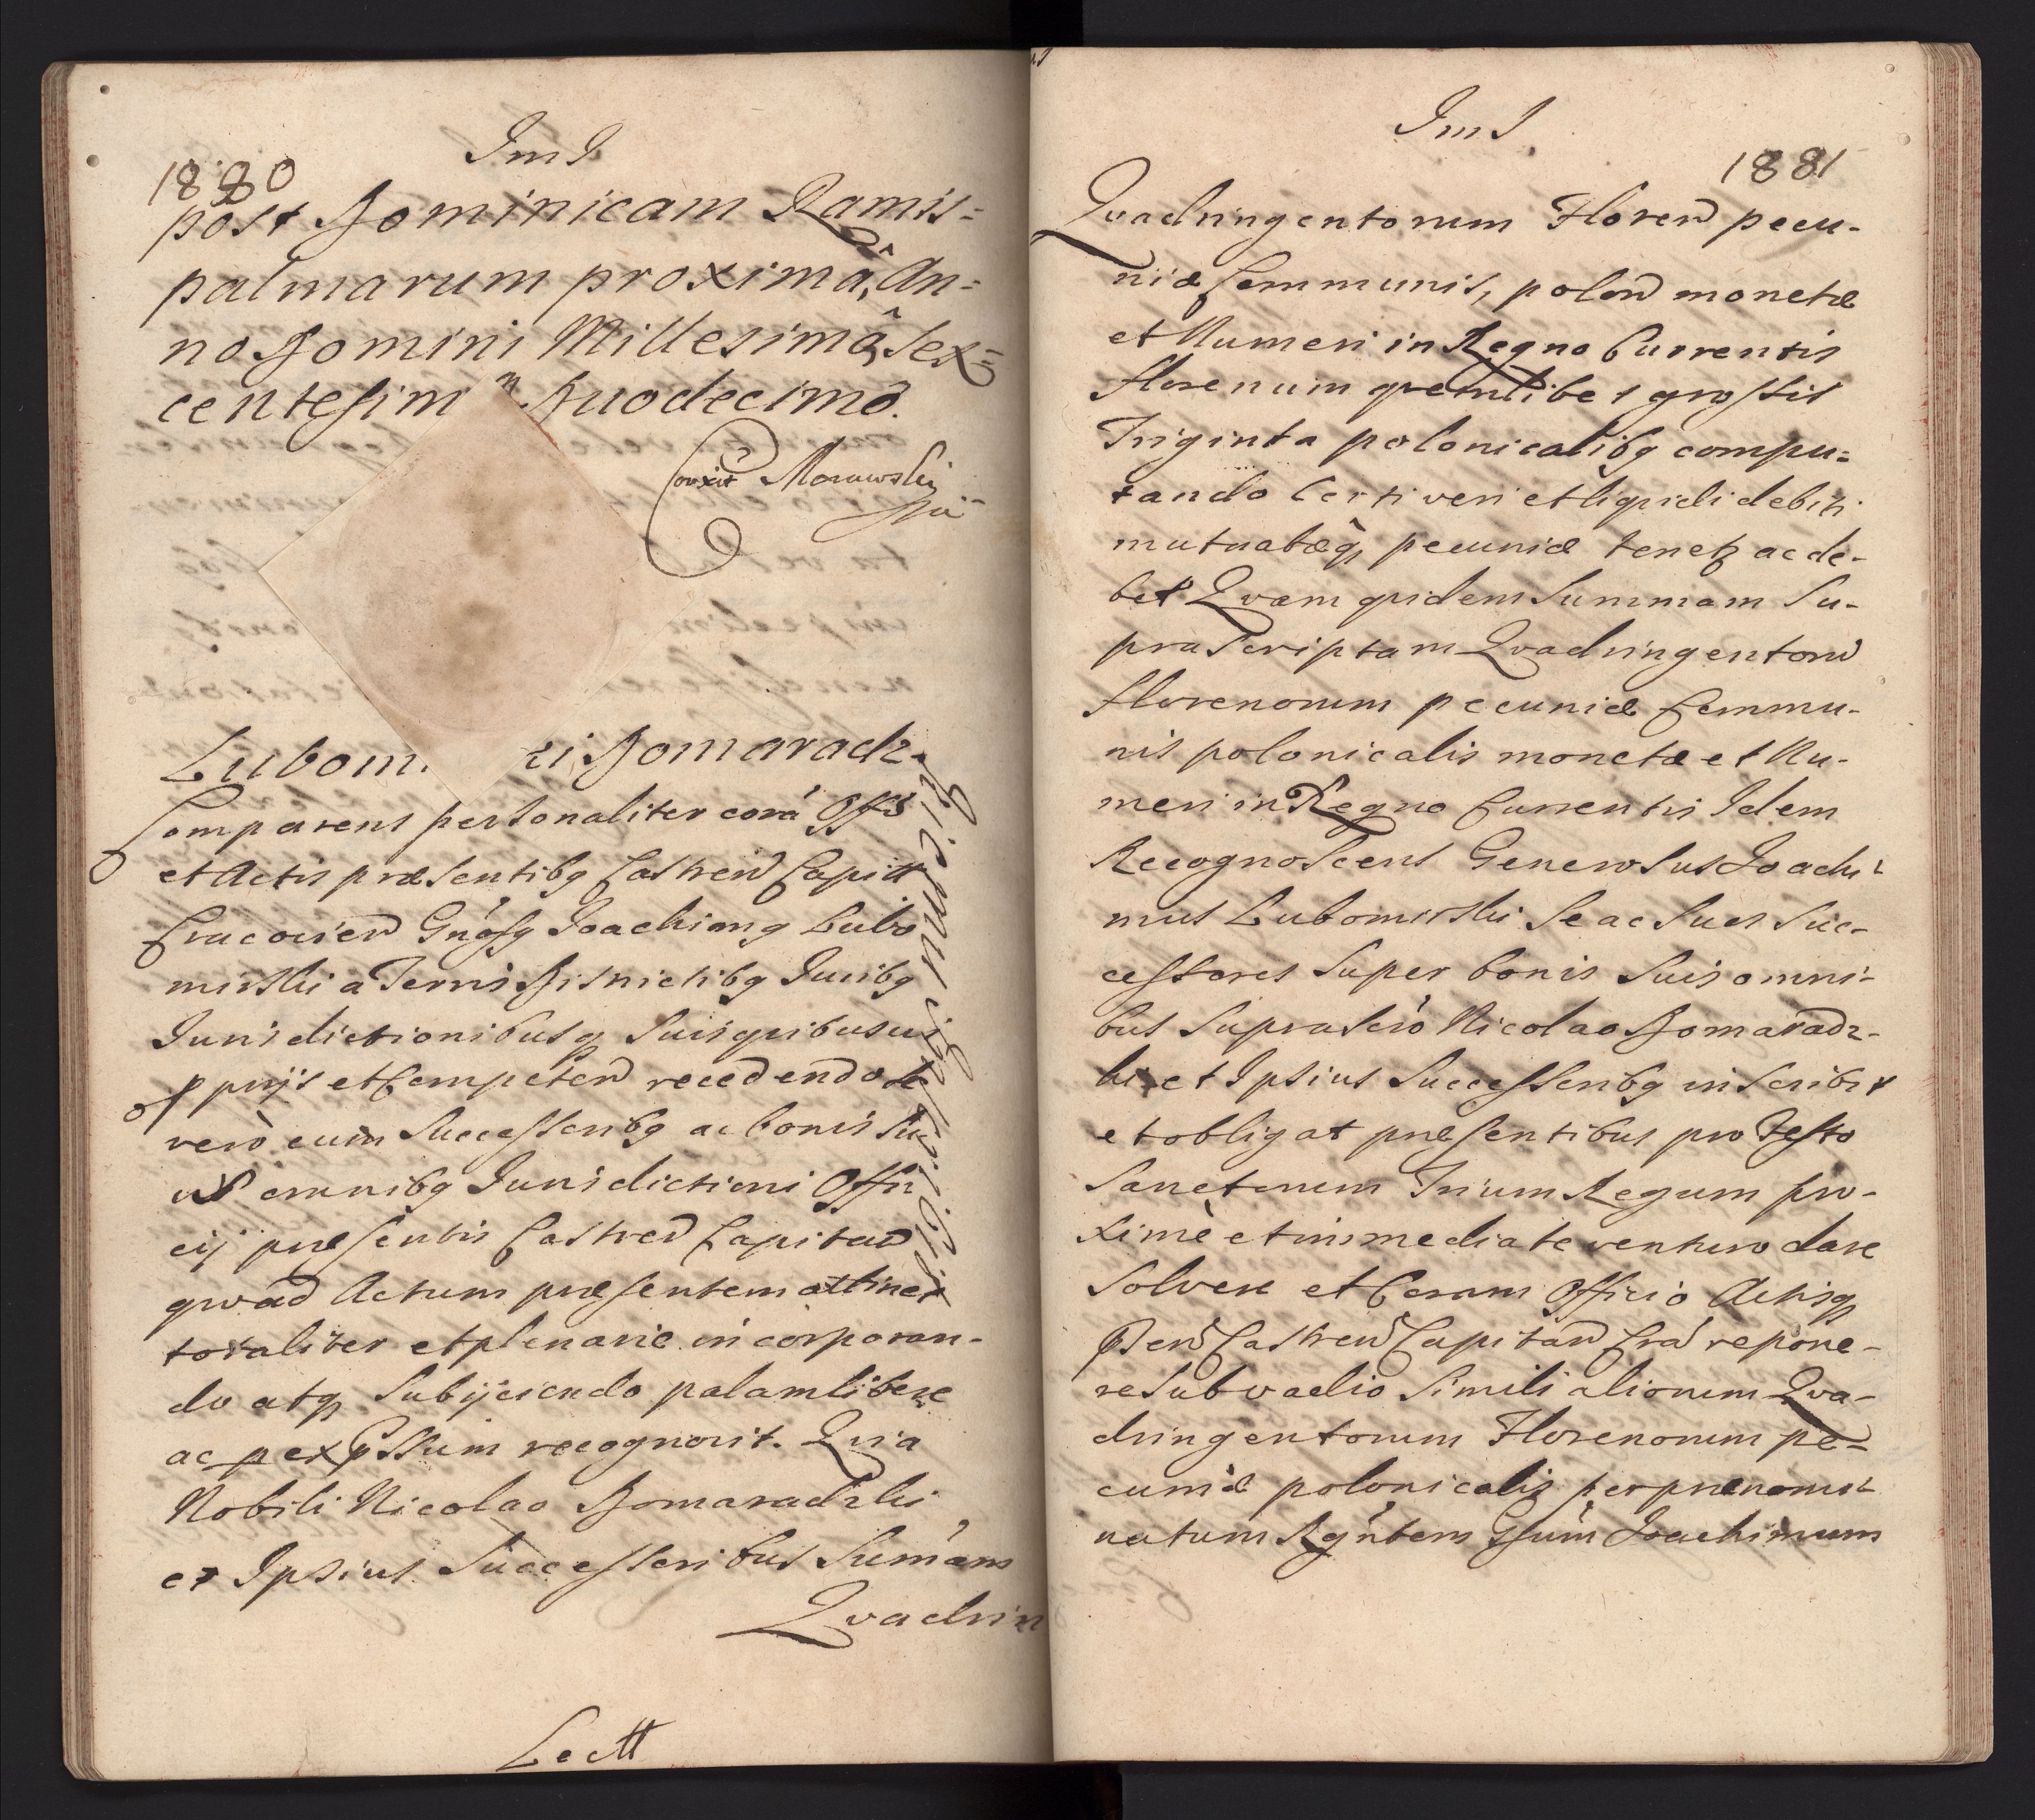 ImI
1880
post Dominicam Ramis=
palmarum proximâ, An=
no Domini Millesimô, Sex=
centesim Duodecimô.
Morawski
Lubom. ki Domaradz.
Comparens personaliter corã Offõ
et Actis præsentibg Castren Capitt
Cracovien Gnõsg Joachimg Lubo
mirski a Terris Districtibg Iuribg
Iurisdictionibusq suis quibusuis
pprijs et Competen recedendo se
verò cum Successoribg ac bonis su
is omnibg Iurisdictioni Offi
cij præsentis Castren Capitan
quoad Actum præsentem attinet
totaliter et plenarie incorporan-
do atq subijciendo palam libere
ac p expssum recognovit. Quia
Nobili Nicolao Domaradzki
et Ipsius Successoribus Sum̃am
Quadrin
Lectt
Domino inscribit
ImI
1881
Quadringentorum Floren pecu-
niæ Communis, polon monetæ
et Numeri in Regno Currentis
florenum quemlibet grossis
Triginta polonicalibg compu=
tando Certi veri et liquidi debiti
mutuatæq pecuniæ tenetz ac de-
bet Quam quidem Summam Su-
prascriptam Quadringentorũ
florenorum pecuniæ Commu-
nis polonicalis monetæ et Nu-
meri in Regno Currentis Idem
Recognoscens Generosus Joachi-
mus Lubomirski se ac suos suc-
cessores super bonis suis omni-
bus suprascrõ Nicolao Domaradz-
ki et Ipsius Successoribg inscribit
et obligat præsentibus pro Festo
Sanctorum Trium Regum pro-
ximè et immediate venturo dare
solvere et Coram Officio Actisq
Pten Castren Capitan Cra repone-
re sub vadio simili aliorum Qua-
dringentorum Florenorum pe-
cuniæ polonicalis per prænomi-
natum Rgñtem Gsum Joachimum